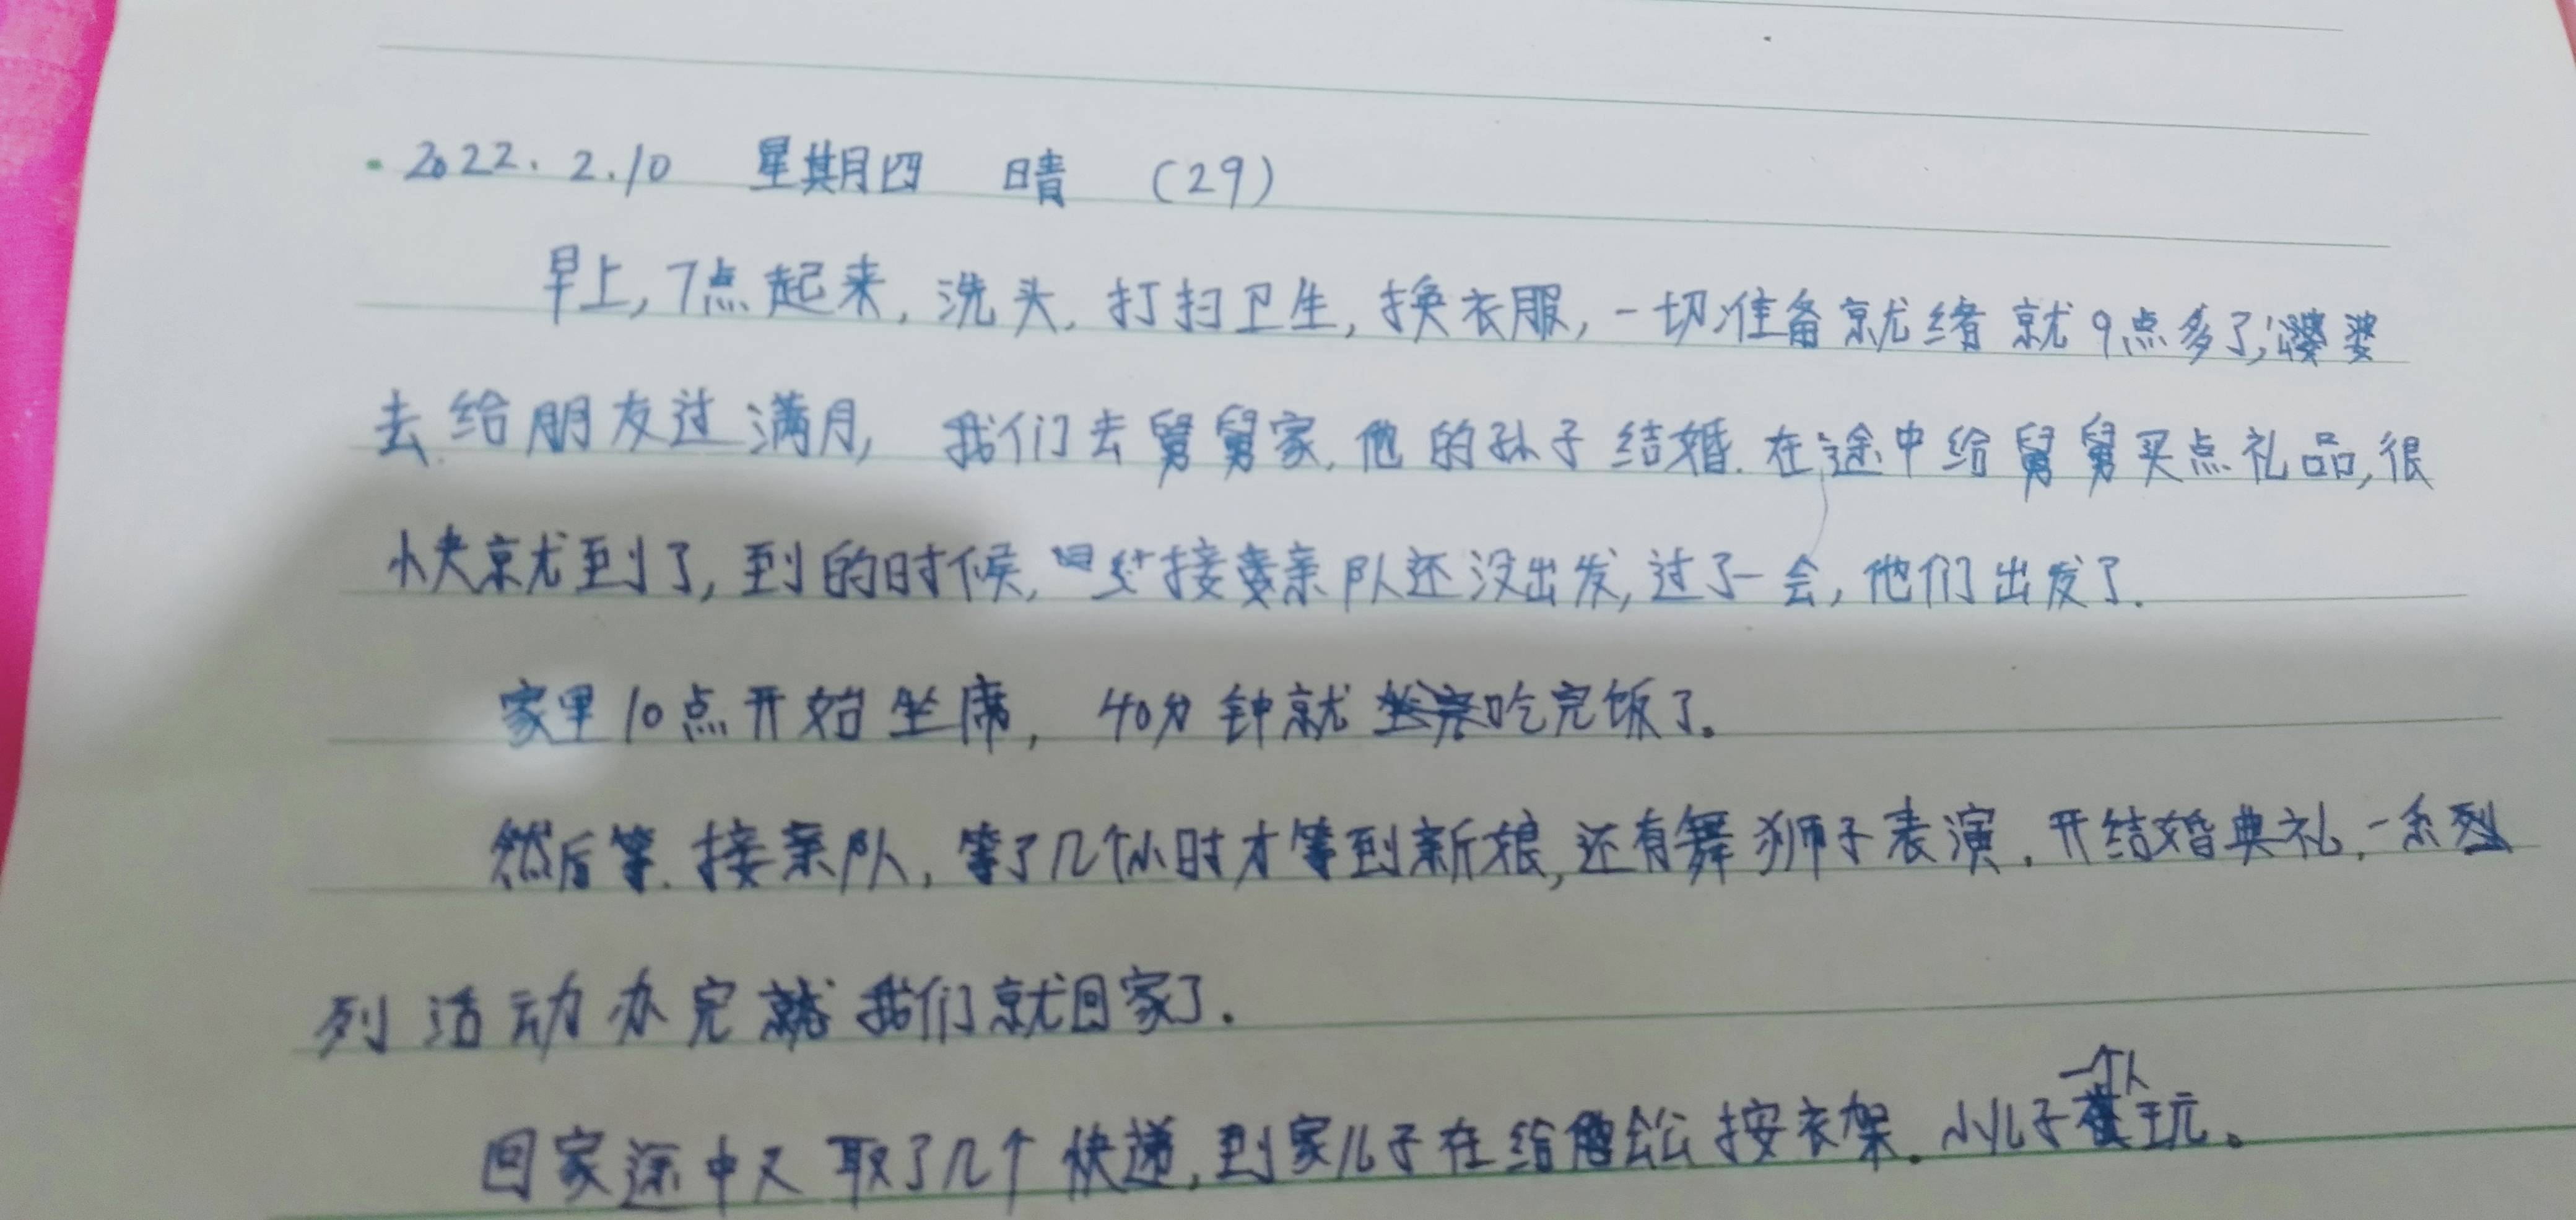 2022.2.10 星期四 晴 (29)
早上,7点起来,洗头,打扫卫生,换衣服,一切准备就绪就9点多了,婆婆
去给朋友过满月,我们去舅舅家,他的孙子结婚.在途中给舅舅买点礼品,很
快就到了,到的时候,接亲队还没出发,过了一会,他们出发了.
家里10点开始坐席,40分钟就吃完饭了。
然后等接亲队,等了几个小时才等到新娘,还有舞狮子表演.开结婚典礼,一系
列活动办完我们就回家了.
回家途中又取了几个快递,到家儿子在给公公按衣架.小儿子一个人玩。